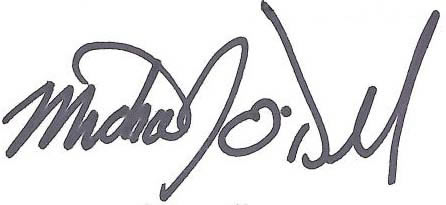 Michael J O'Dell